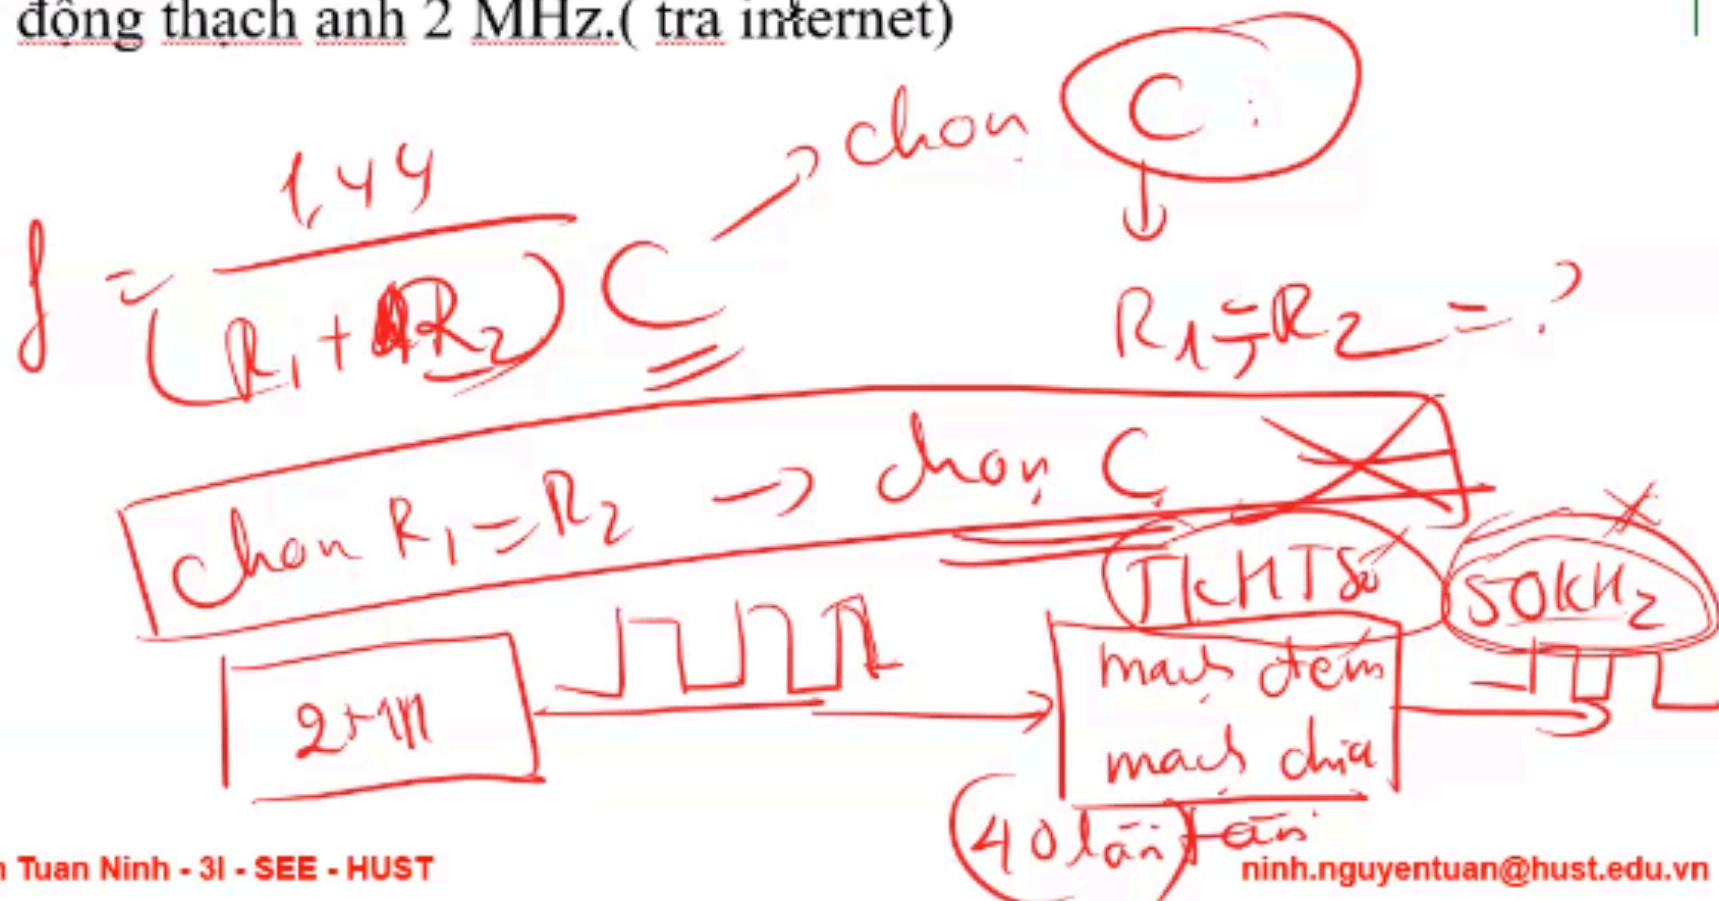 động thạch anh 2 MHz.( tra internet)
chọn C :
f = 1,44 / (R1 + R2) C
R1 = R2 = ?
chọn R1 = R2 → chọn C
TKHT Số 50KHz
2M
mạch đếm
mạch chia
40 lần tần
n Tuan Ninh - 3I - SEE - HUST
ninh.nguyentuan@hust.edu.vn